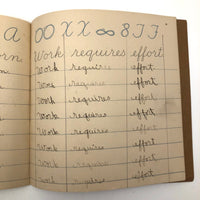 a OO X X ∞ 8 J J
orn. Work requires effort
Work requires effort
Work requires effort
Work requires effort
Work requires effort
Work requires effort
Work requires effort
Work requires effort
Work requires effort